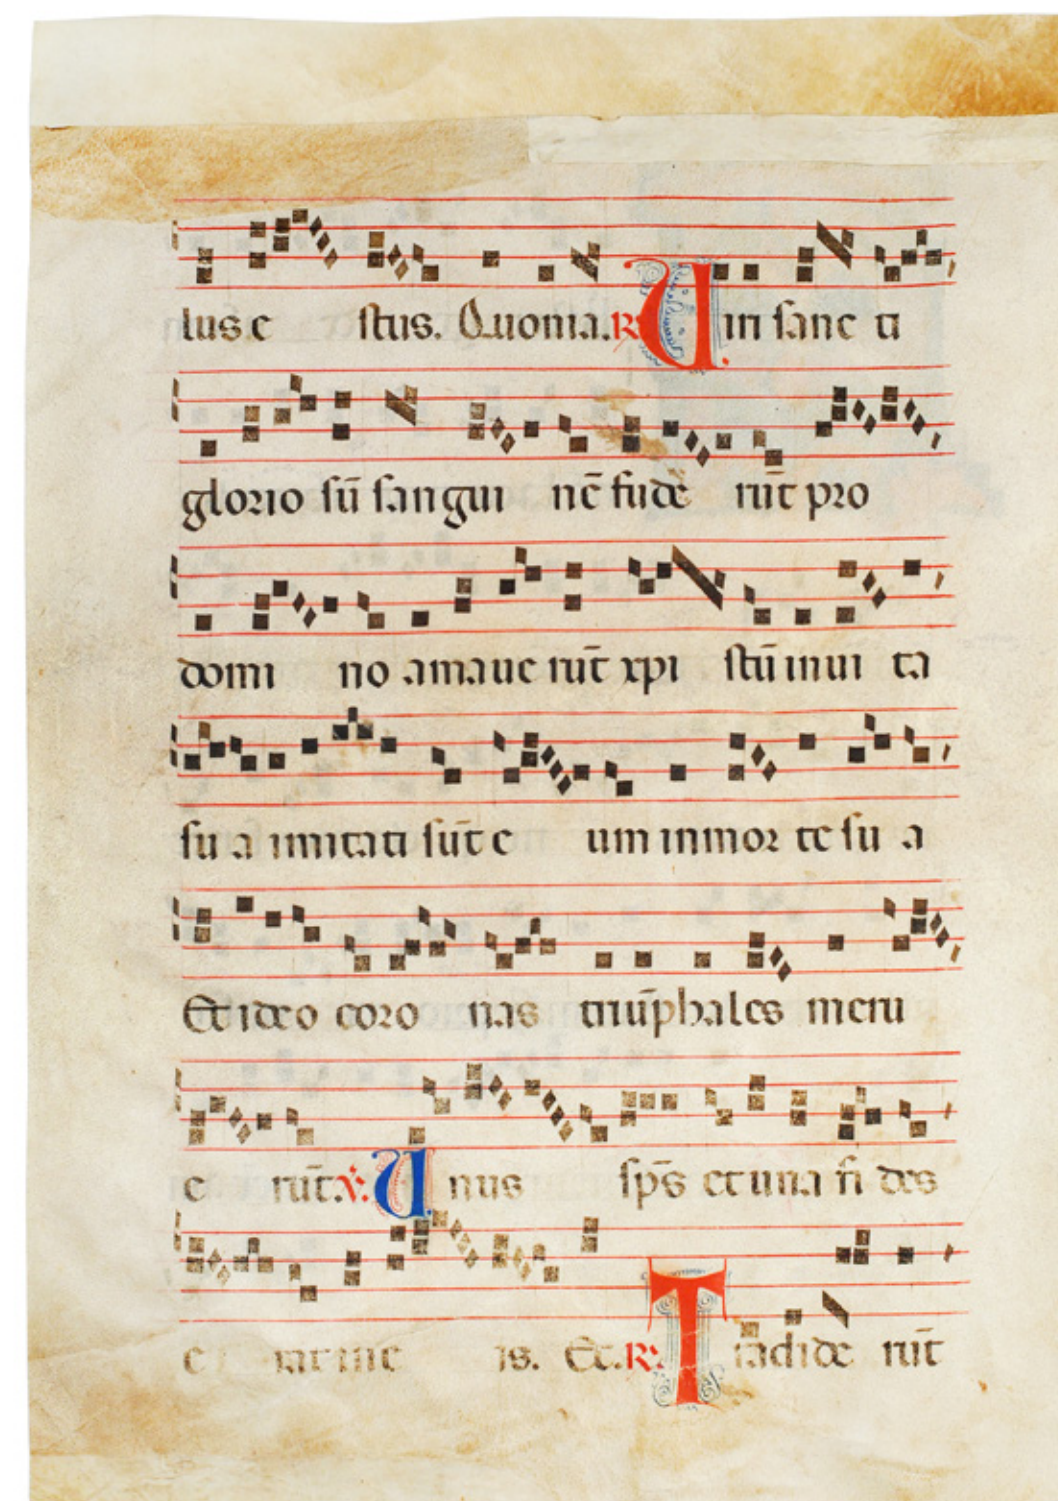 lus e stus. Quonia. R Uin sanc ti
glorio sū sangui nē fude rūt pro
domi no amaue rūt xpi stū inui ta
su a imitati sūt e um in mor te su a
Et ideo coro nas triūphales meru
e rūt. V. U nus sp̄s et una fi des
e rat in e is. Et. R. T radide rūt